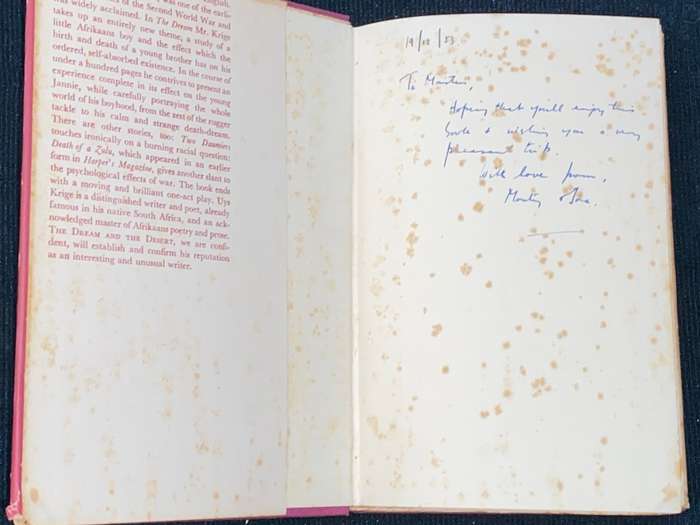 was one of the earli-
of the Second World War and
was widely acclaimed. In The Dream Mr. Krige
takes up an entirely new theme, a study of a
little Afrikaans boy and the effect which the
birth and death of a young brother has on his
ordered, self-absorbed existence. In the course of
under a hundred pages he contrives to present an
experience complete in its effect on the young
Jannie, while carefully portraying the whole
world of his boyhood, from the zest of the rugger
tackle to his calm and strange death-dream.
There are other stories, too: Two Daumiers
touches ironically on a burning racial question:
Death of a Zulu, which appeared in an earlier
form in Harper's Magazine, gives another slant to
the psychological effects of war. The book ends
with a moving and brilliant one-act play. Uys
Krige is a distinguished writer and poet, already
famous in his native South Africa, and an ack-
nowledged master of Afrikaans poetry and prose.
THE DREAM AND THE DESERT, we are confi-
dent, will establish and confirm his reputation
as an interesting and unusual writer.
To
Hoping that you'll enjoy this
book & wishing you a very
pleasant trip.
With love from,
Monty